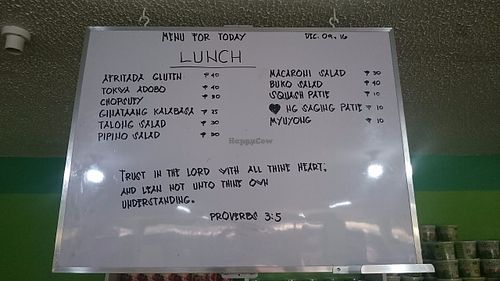 MENU FOR TODAY
DEC. 09. 16
LUNCH
AFRITADA GLUTEN ₱ 40
TOKWA ADOBO ₱ 40
CHOPSUEY ₱ 30
GINATAANG KALABASA ₱ 25
TALONG SALAD ₱ 30
PIPINO SALAD ₱ 30
MACARONI SALAD ₱ 30
BUKO SALAD ₱ 40
SQUASH PATIE ₱ 10
♥ NG SAGING PATIE ₱ 10
MYUYONG ₱ 10
HappyCow
TRUST IN THE LORD WITH ALL THINE HEART;
AND LEAN NOT UNTO THINE OWN
UNDERSTANDING.
PROVERBS 3:5